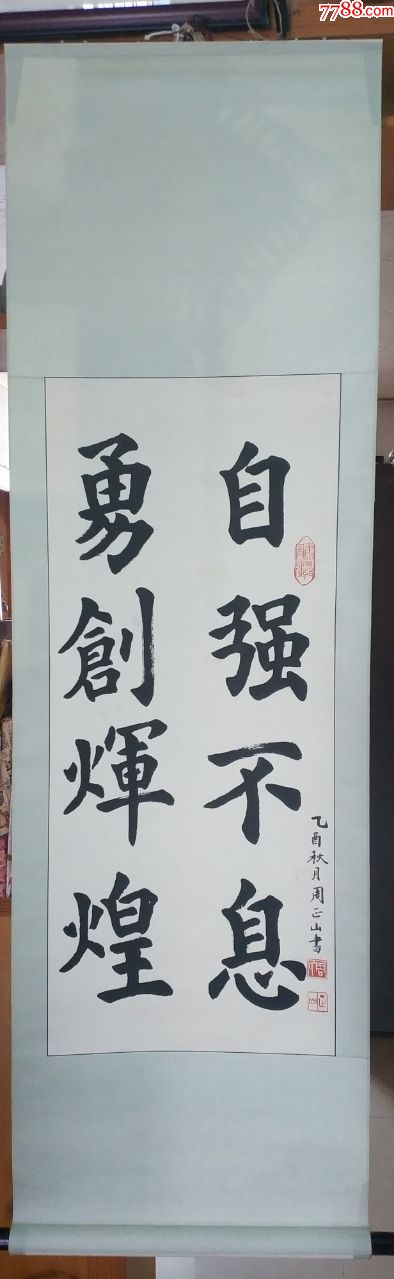 7788.com
自强不息
勇創煇煌
乙酉秋月周正山書